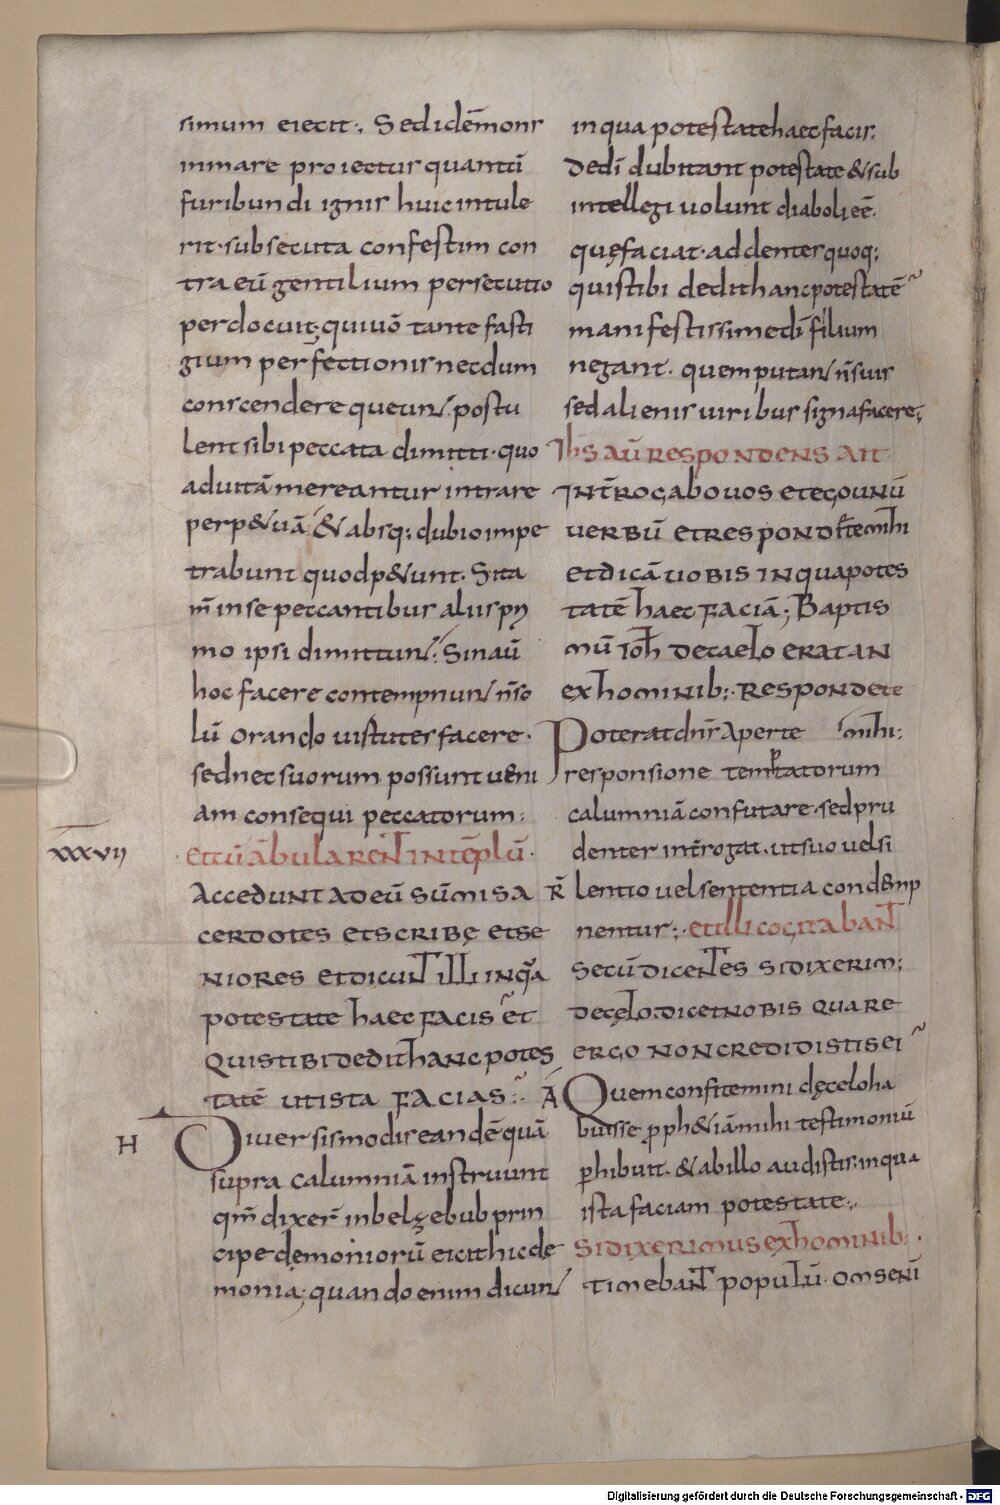 simum eiecit·, Sed idē mons
in mare proiectus quantū
furibundi ignis huic intule
rit· subsecuta confestim con
tra eū gentilium persecutio
perdocuit; qui uō tante fasti
gium perfectionis necdum
conscendere queunt; postu
lent sibi peccata dimitti· quo
ad uitā mereantur intrare
perp&uā· & absq; dubio impe
trabunt quod p&unt· Si ta
m̄ in se peccantibus aliis
mo ipsi dimittunt; Sin aū
hoc facere contempnunt n̄ so
lū orando uirtutes facere·
sed nec suorum possunt ueni
am consequi peccatorum;
xxxvii
et cū ābularent in tēplū·
Accedunt ad eū sūmi sa
cerdotes et scribę et se
niores et dicunt illi in qua
potestate haec facis et
quis tibi dedit hanc potes
tatē ut ista facias
H
Diuersis modis eandē quā
supra calumniā instruunt
qm̄ dixer̄ in belzebub prin
cipe dęmoniorū eicit hic dę
monia; quando enim dicunt
in qua potestate haec facis;
dedī dubitant potestate & sub
intellegi uolunt diaboli eē·
quę faciat· addentes quoq;
quis tibi dedit hanc potestatē
manifestissime dī filium
negant· quem putant n̄ suis
sed alienis uiribus signa facere;
Ihs aū respondens ait
Int̄rogabo uos et ego unū
uerbū et respondete mihi
et dicā uobis in qua potes
tatē haec faciā; Baptis
mū ioh de caelo erat an
ex hominib; Respondete
mihi:
Poterat dn̄s aperte
responsione temptatorum
calumniā confutare· sed pru
denter int̄rogat· ut suo uel si
R̄ lentio uel sententia condemp
nentur; et illi cogitabant
secū dicentes si dixerim;
de cęlo· dicet nobis quare
ergo non credidistis ei
Ā Quem confitemini de cęlo ha
buisse proph&iā mihi testimoniū
perhibuit· & ab illo audistis in qua
ista faciam potestate;
Si dixerimus ex hominib;
timebant populū· oms enī
Digitalisierung gefördert durch die Deutsche Forschungsgemeinschaft - DFG